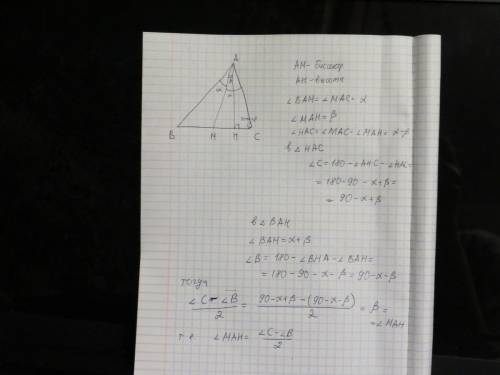 A
α
β
α
B
M
H
C
AM - биссектр
AH - высота
∠BAM = ∠MAC = α
∠MAH = β
∠HAC = ∠MAC - ∠MAH = α-β
в △HAC
∠C = 180 - ∠AHC - ∠HAC =
= 180 - 90 - α + β =
= 90 - α + β
в △BAH
∠BAH = α + β
∠B = 180 - ∠BHA - ∠BAH =
= 180 - 90 - α - β = 90 - α - β
тогда
(∠C - ∠B)/2 = (90 - α + β - (90 - α - β))/2 = β =
= ∠MAH
т.е. ∠MAH = (∠C - ∠B)/2